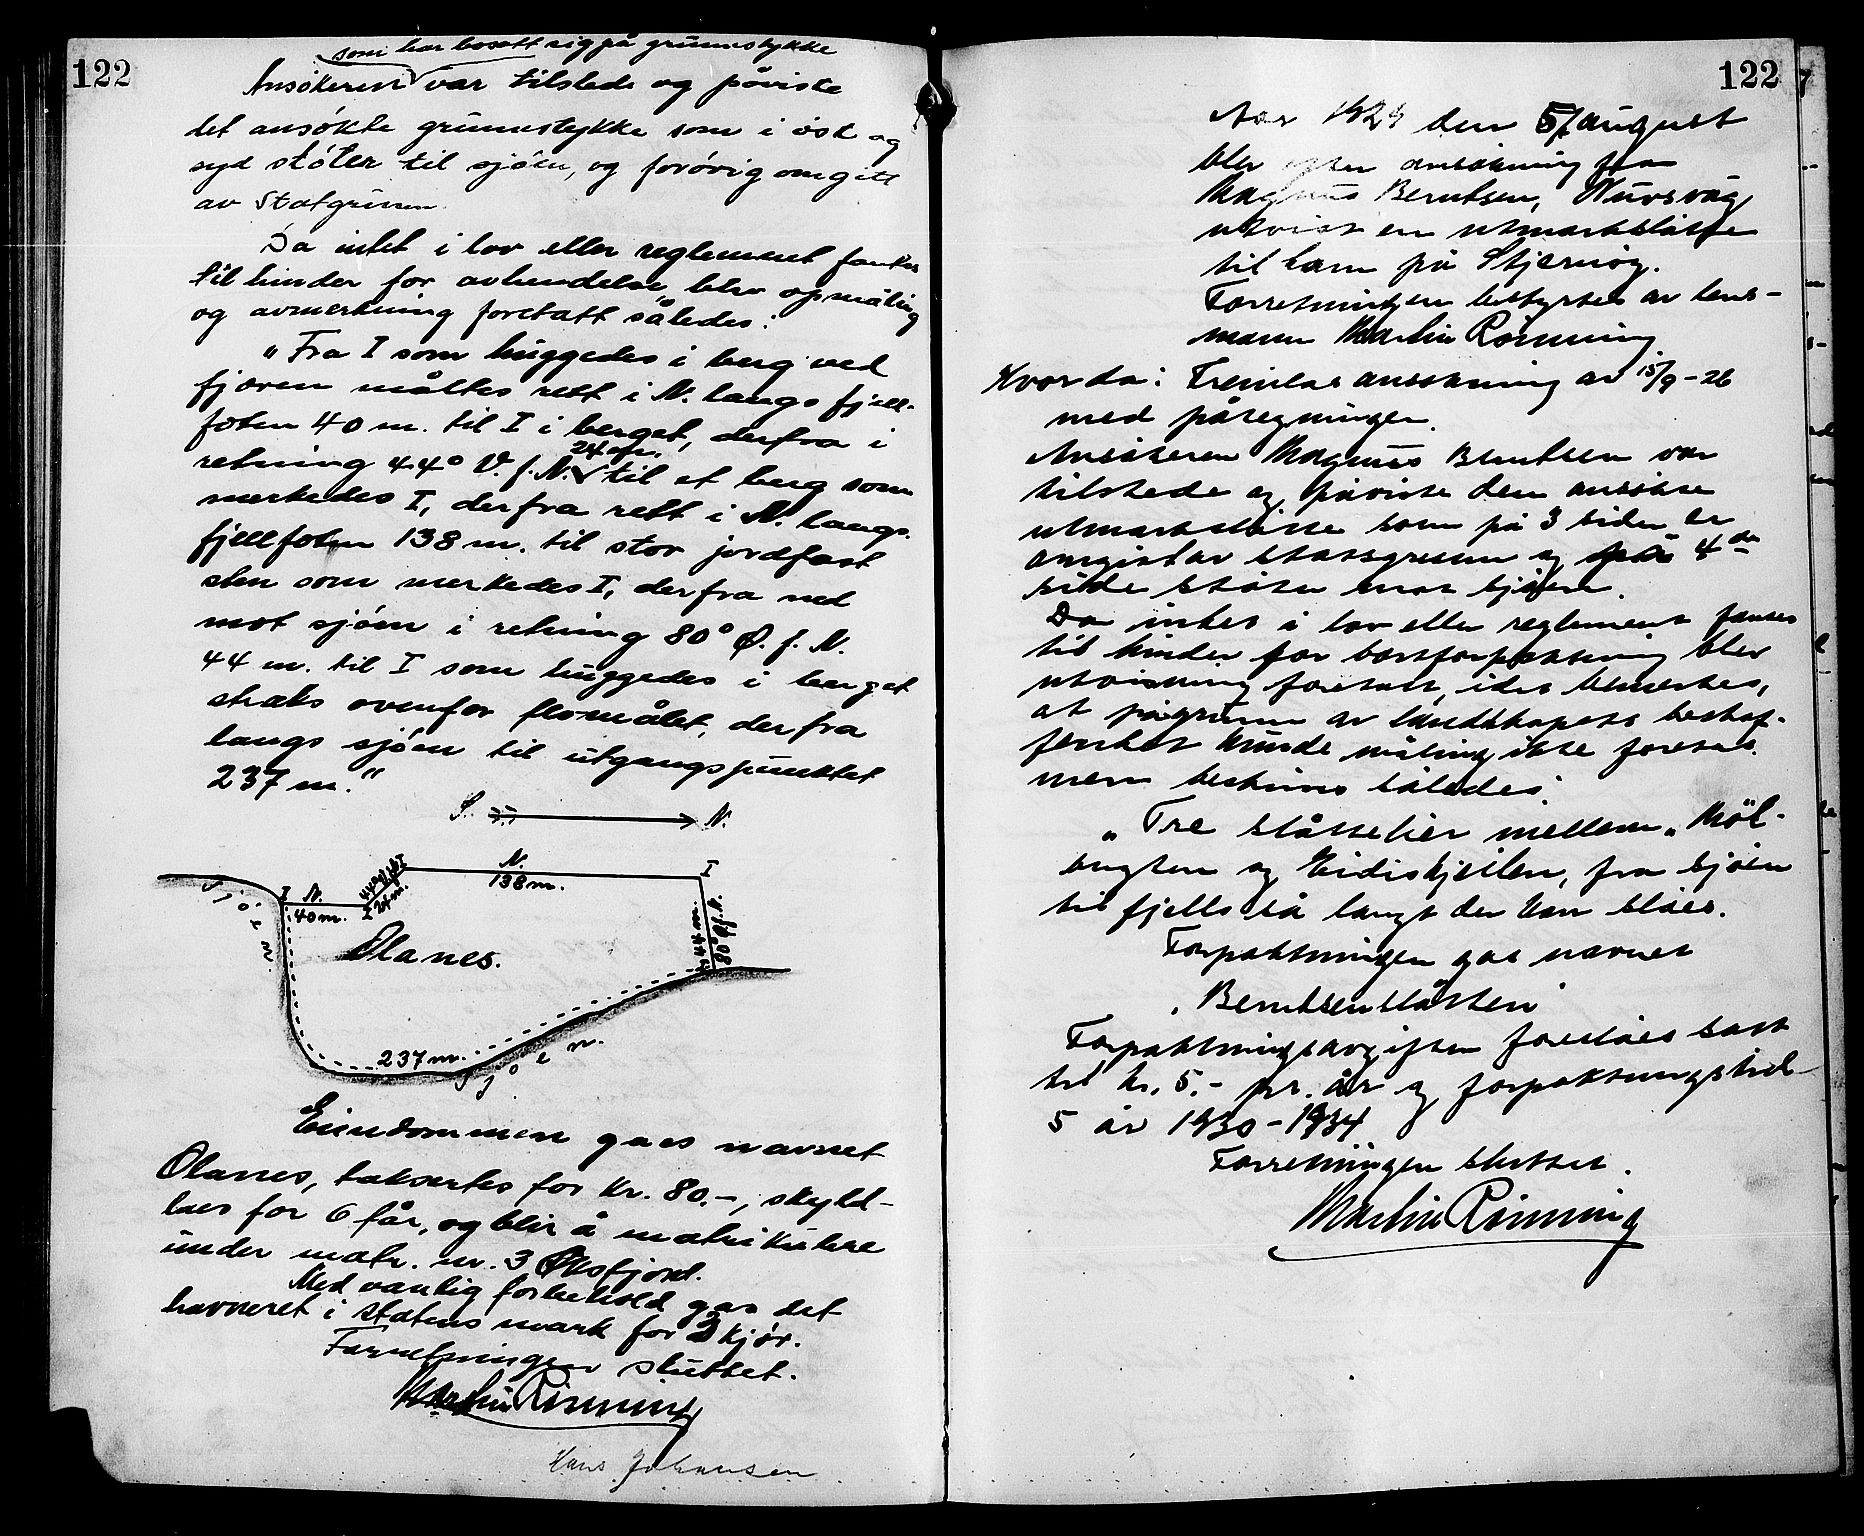 122
som har bosatt sig på grunnstykke
Ansökeren var tilstede og påviste
det ansökte grunnstykke som i öst og
syd stöter til sjöen, og forövrig omgitt
av Statsgrunn.
Da intet i lov eller reglement fantes
til hinder for avhendelse, blev opmåling
og avmerkning foretatt således:
"Fra I som huggedes i berg ved
fjæren måltes rett i N. langs fjell-
foten 40 m. til I i berget, derfra i
retning 44° V. f. N. 24 m. til et berg som
merkedes I, derfra rett i N. langs
fjellfoten 138 m. til stor jordfast
sten som merkedes I, derfra ned
mot sjöen i retning 80° Ø. f. N.
44 m. til I som huggedes i berget
straks ovenfor flomålet, derfra
langs sjöen til utgangspunktet
237 m."
S. N.
I N. 40 m. I 24 m. 44° V.f.N. I N. 138 m. I
44 m. 80° Ø.f.N.
Sjöen
Olanes.
237 m.
Sjöen.
Eiendommen gaes navnet
Olanes, taksertes for kr. 80.-, skyld-
laes for 6 får, og blir å matrikulere
under matr. nr. 3 Øksfjord.
Med vanlig forbehold gaes det
havneret i statens mark for 2 kjör.
Forretningen sluttet.
Martin Rönning
Hans Johansen
122
Aar 1929 den 5/ august
blev efter ansökning fra
Magnus Berntsen, Nuvsvåg
utvist en utmarkslåtte
til ham på Stjernöy.
Forretningen bestyrtes av lens-
mann Martin Rönning.
Hvorda: Fremlas ansökning av 15/9-26
med påtegninger.
Ansökeren Magnus Berntsen var
tilstede og påviste den ansökte
utmarkslåtte som på 3 sider er
omgitt av statsgrunn og på 4de
side stöter mot sjöen.
Da intet i lov eller reglement fantes
til hinder for bortforpaktning blev
utvisning foretatt, idet bemerkes,
at pågrunn av landskapets beskaf-
fenhet kunde måling ikke foretas.
men bestemt således:
"Tre slåttelier mellem "Möl-
bugten og Eidiskjeilen, fra sjöen
til fjells så langt der kan slåes.
Forpaktningen gaes navnet
"Berntsenslåtten"
Forpaktningsavgiften foreslåes satt
til kr. 5.- pr. år og forpaktningstid
5 år 1930-1934
Forretningen sluttet.
Martin Rönning